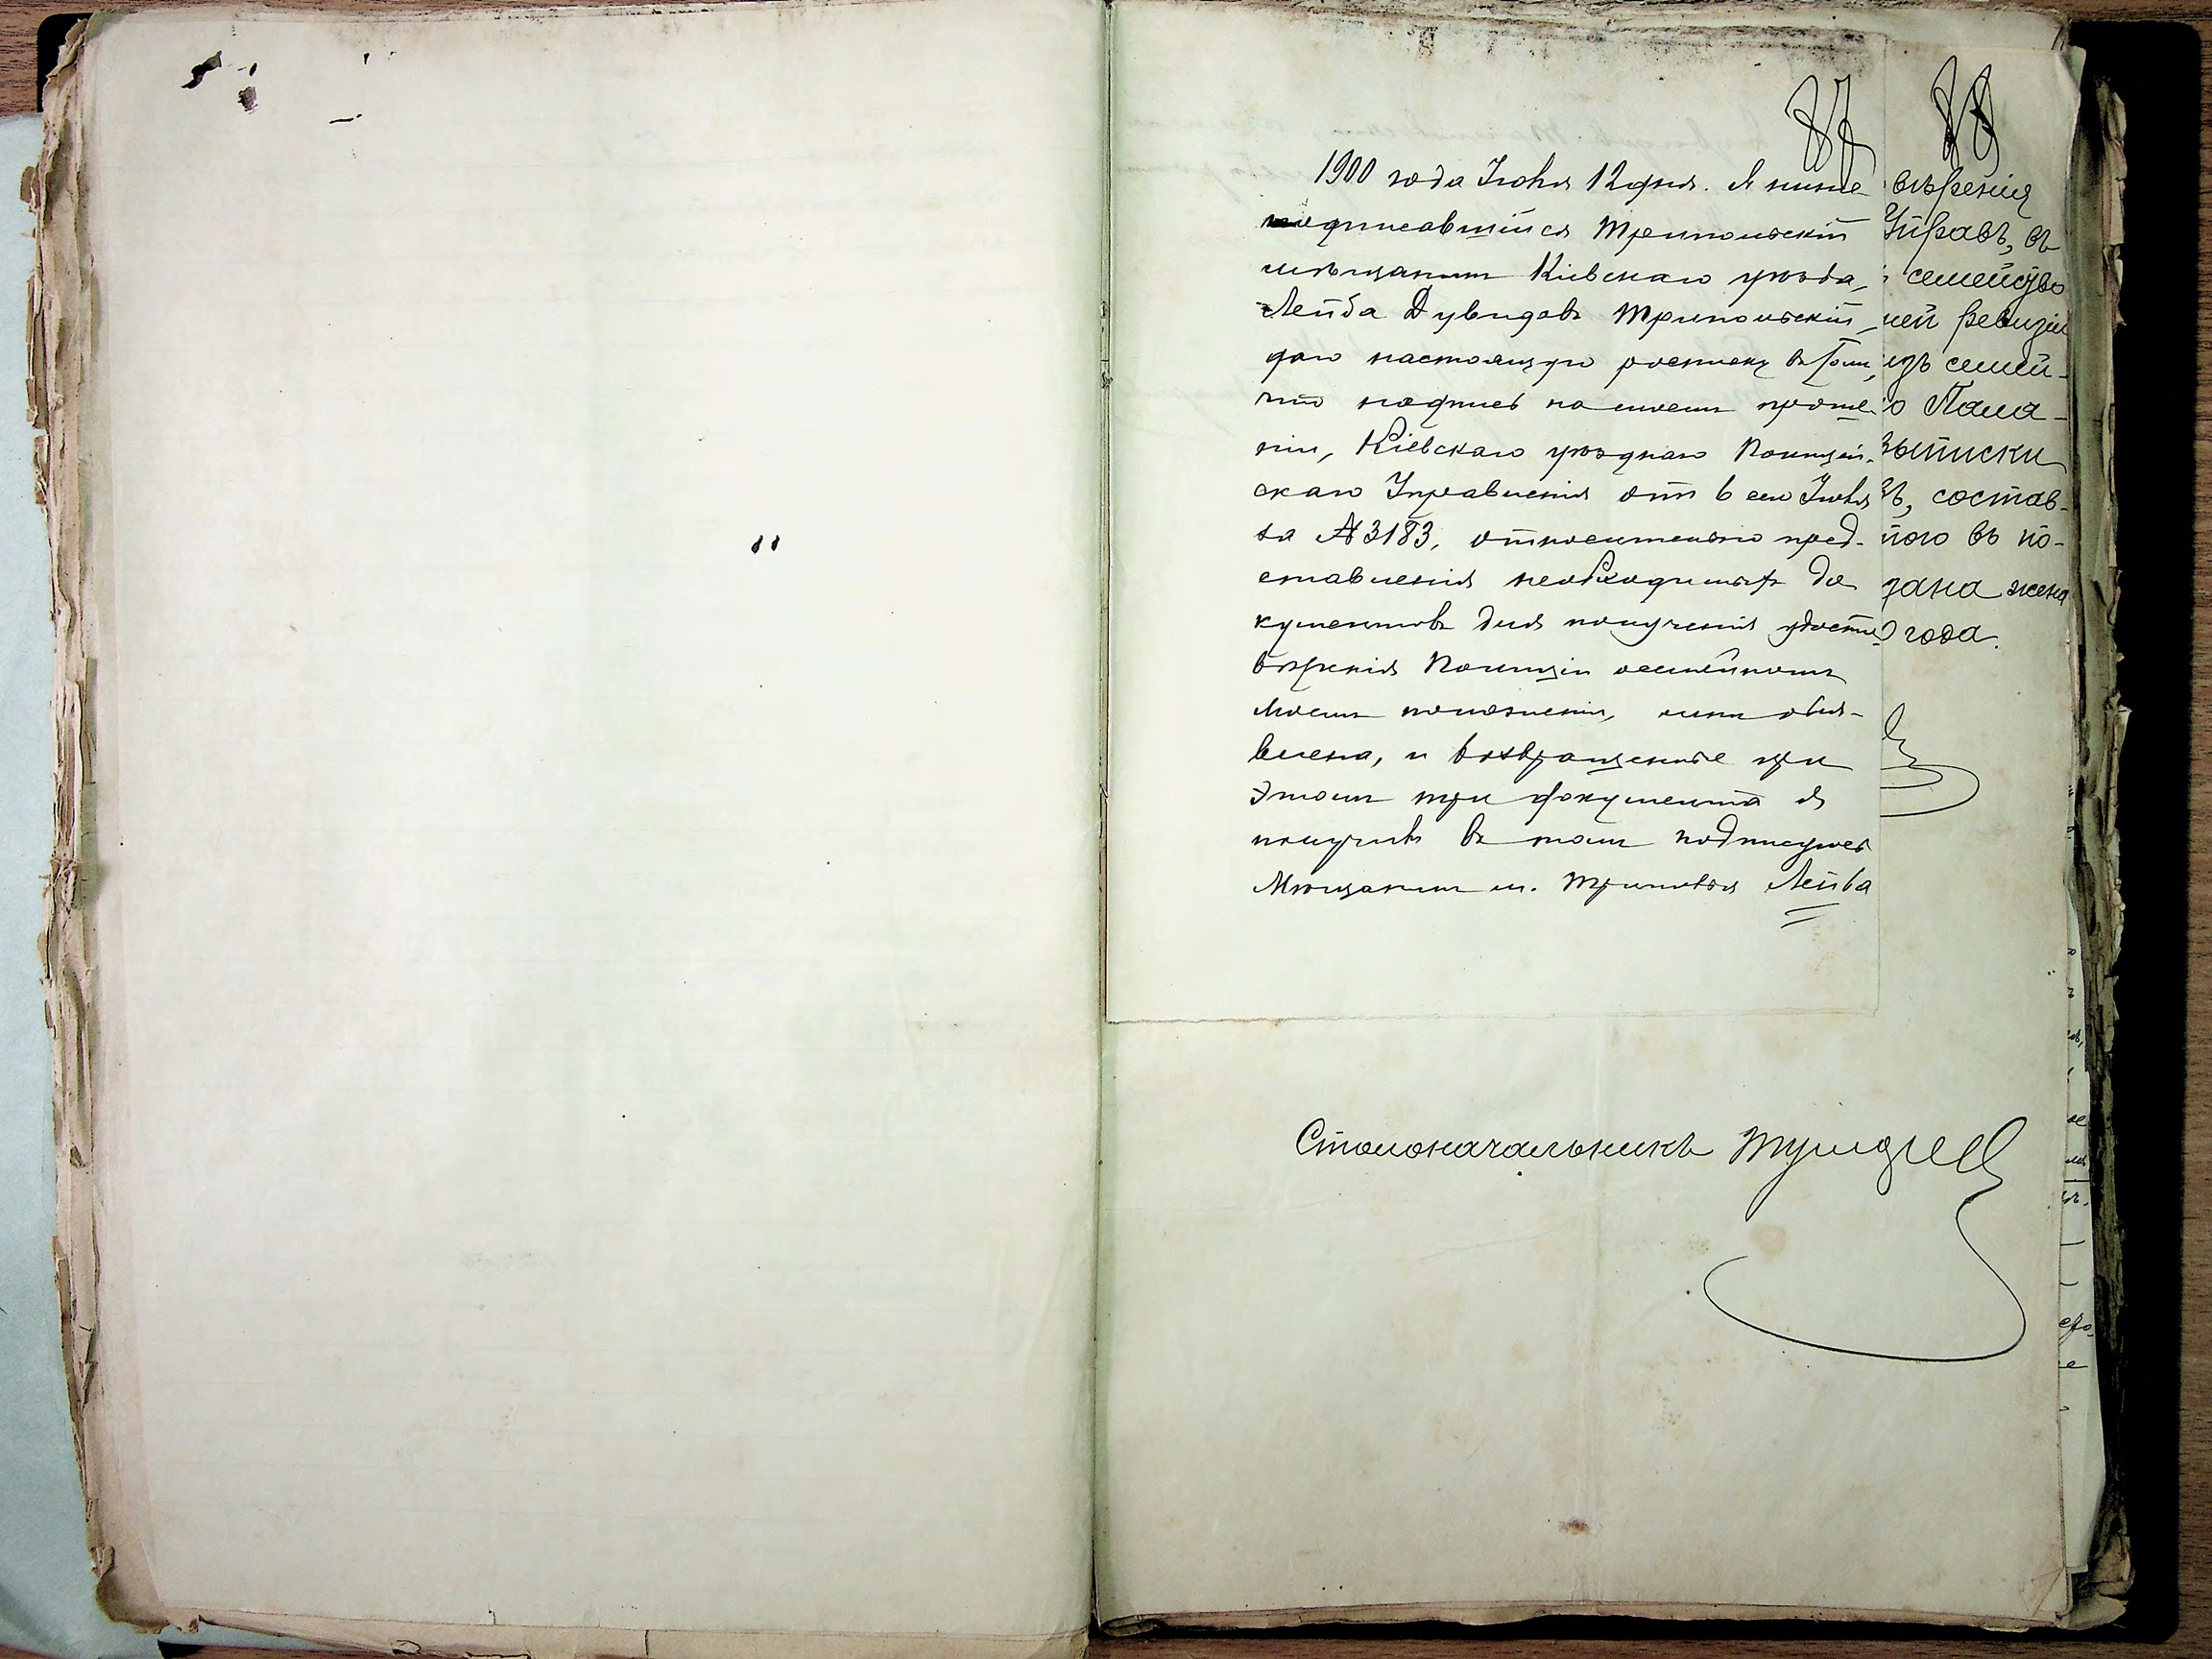 87
88
1900 года Іюня 12 дня. Я ниже
подписавшійся Трипольскій
мѣщанинъ Кіевскаго уѣзда,
Лейба Дувидовъ Трипольскій
даю настоящую росписку въ томъ,
что надпись на моемъ проше-
ніи, Кіевскаго уѣзднаго Полицей-
скаго Управленія отъ 6 сего Іюня
за № 3183, относительно пред-
ставленія необходимыхъ до
кументовъ для полученія удосто-
вѣренія Полиціи о семейномъ
моемъ положеніи, мнѣ объя-
влена, и возвращенные при
этомъ три документа я
получилъ въ томъ подписуюсь
Мѣщанинъ м. Триполья Лейба
вѣренія
Управѣ, въ
семейство
ней ревизіи
изъ семей-
Пала-
выписки
составъ-
ного въ по-
дана жена
года.
Столоначальникъ